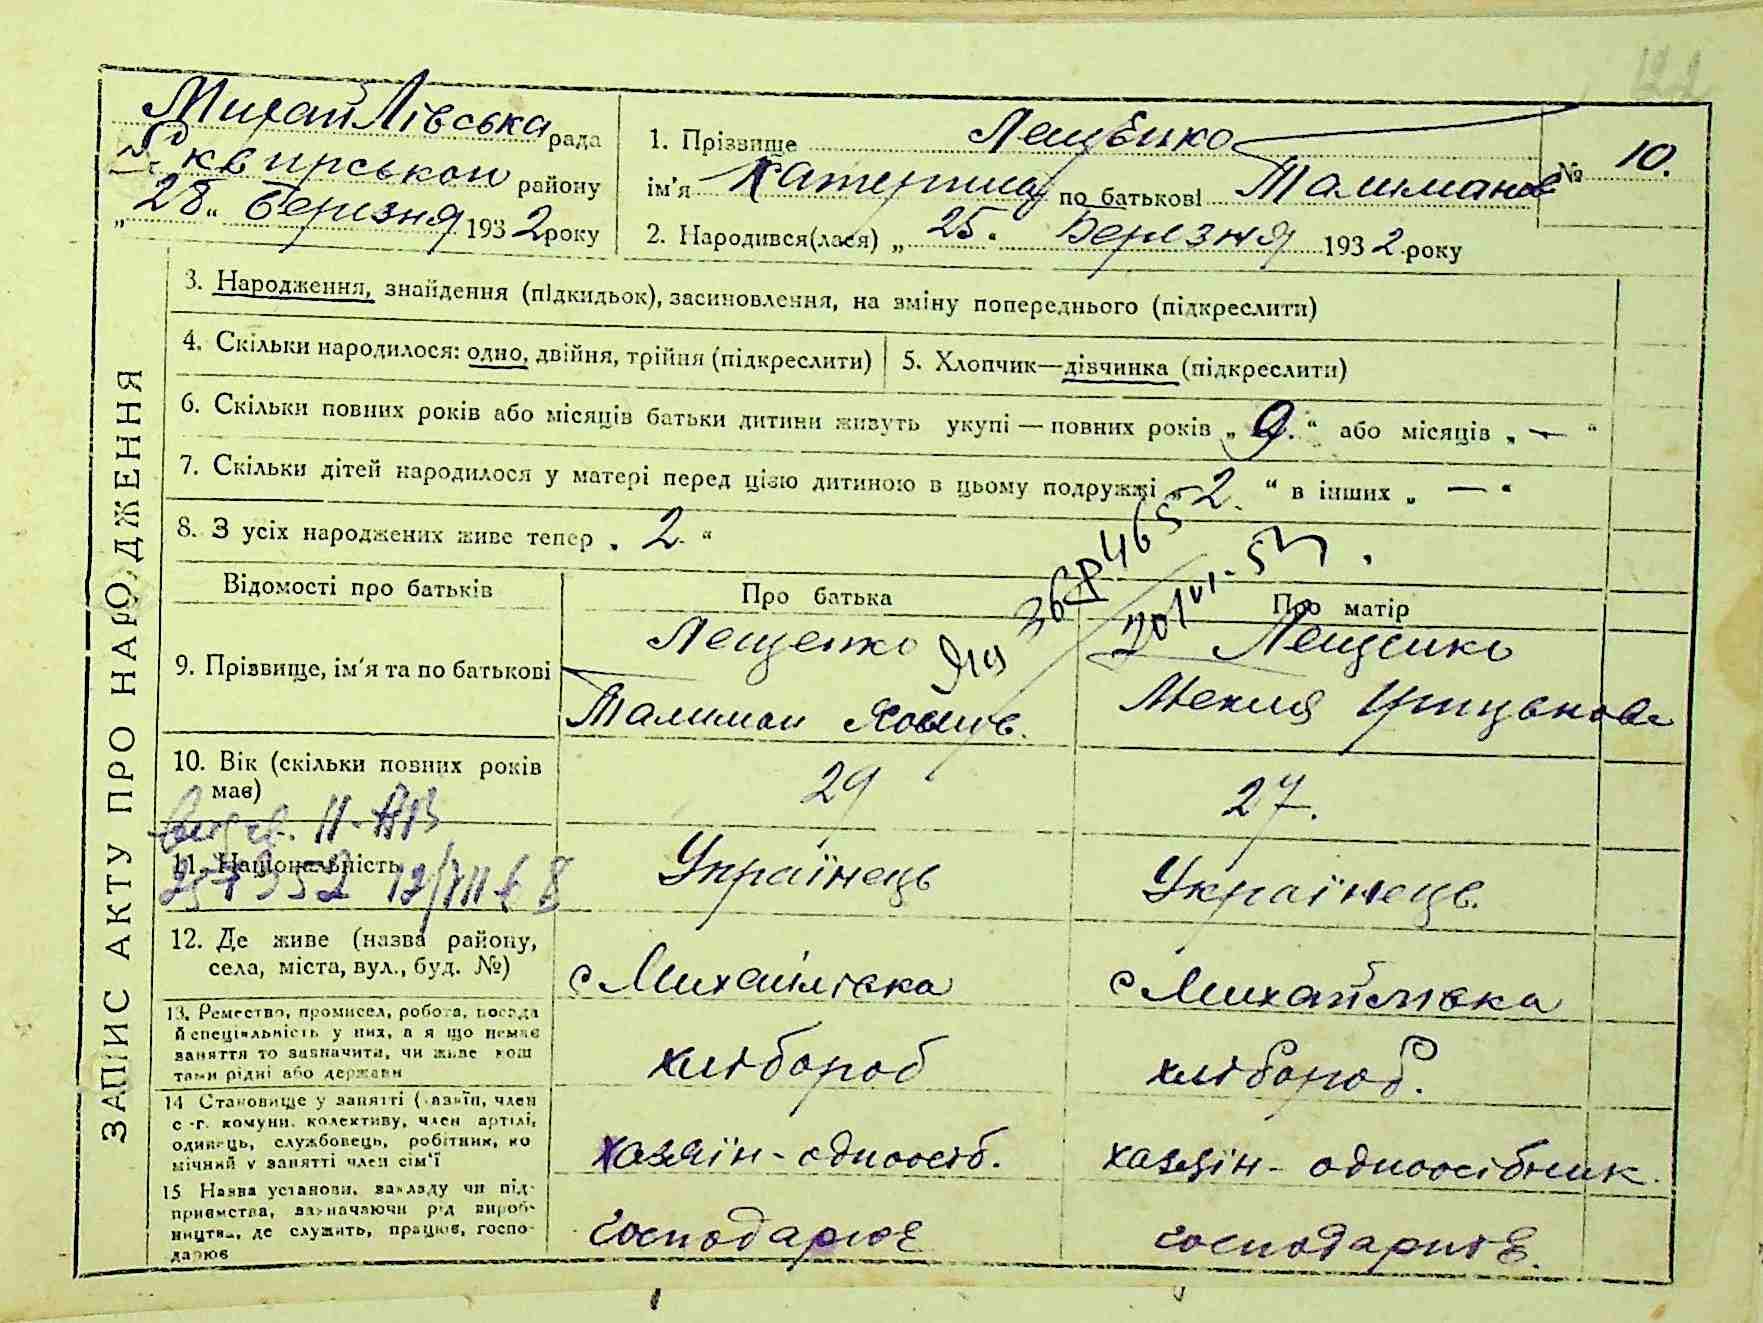 122
ЗАПИС АКТУ ПРО НАРОДЖЕННЯ
Михайлівська рада
Сквирського району
„28“ Березня 1932 року
1. Прізвище Лещенко
ім'я Катерина по батькові Талиманов
№ 10.
2. Народився(лася) „25. Березня 1932 року
3. Народження, знайдення (підкидьок), засиновлення, на зміну попереднього (підкреслити)
4. Скільки народилося: одно, двійня, трійня (підкреслити)
5. Хлопчик—дівчинка (підкреслити)
6. Скільки повних років або місяців батьки дитини живуть укупі — повних років „9.“ або місяців „—“
7. Скільки дітей народилося у матері перед цією дитиною в цьому подружжі „2.“ в інших „—“
8. З усіх народжених живе тепер „2.“
Відомості про батьків
Про батька
Про матір
9. Прізвище, ім'я та по батькові
Лещенко
Талиман
Лещенко
Мекля
10. Вік (скільки повних років має)
29
27.
11. Національність
Українець
Українець.
12. Де живе (назва району, села, міста, вул., буд. №)
с Михайлівка
с Михайлівка
13. Ремество, промисел, робота, посада
й спеціяльність у них, а якщо немає
заняття то зазначити, чи живе кош
тами рідні або держави
хлібороб
хлібороб.
14 Становище у занятті (хазяїн, член
с.-г. комуни, колективу, член артілі,
одинець, службовець, робітник, по
мічний у занятті член сім'ї
хазяїн - одноосіб.
хазяїн - одноосібник
15 Назва установи, закладу чи під-
приємства, зазначаючи рід вироб-
ництва, де служить, працює, госпо-
дарює
господарює
господарює.